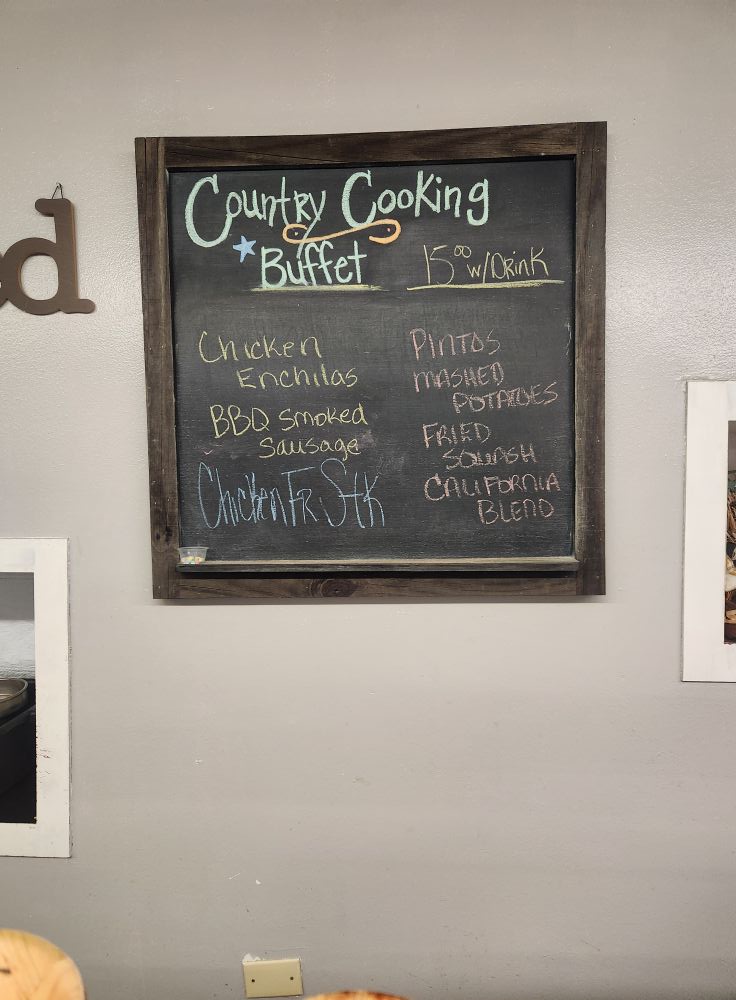 ed
Country Cooking
Buffet
15⁰⁰ w/Drink
Chicken
Enchilas
BBQ Smoked
Sausage
Chicken Fr. Stk
PINTOS
MASHED
POTATOES
FRIED
SQUASH
CALIFORNIA
BLEND